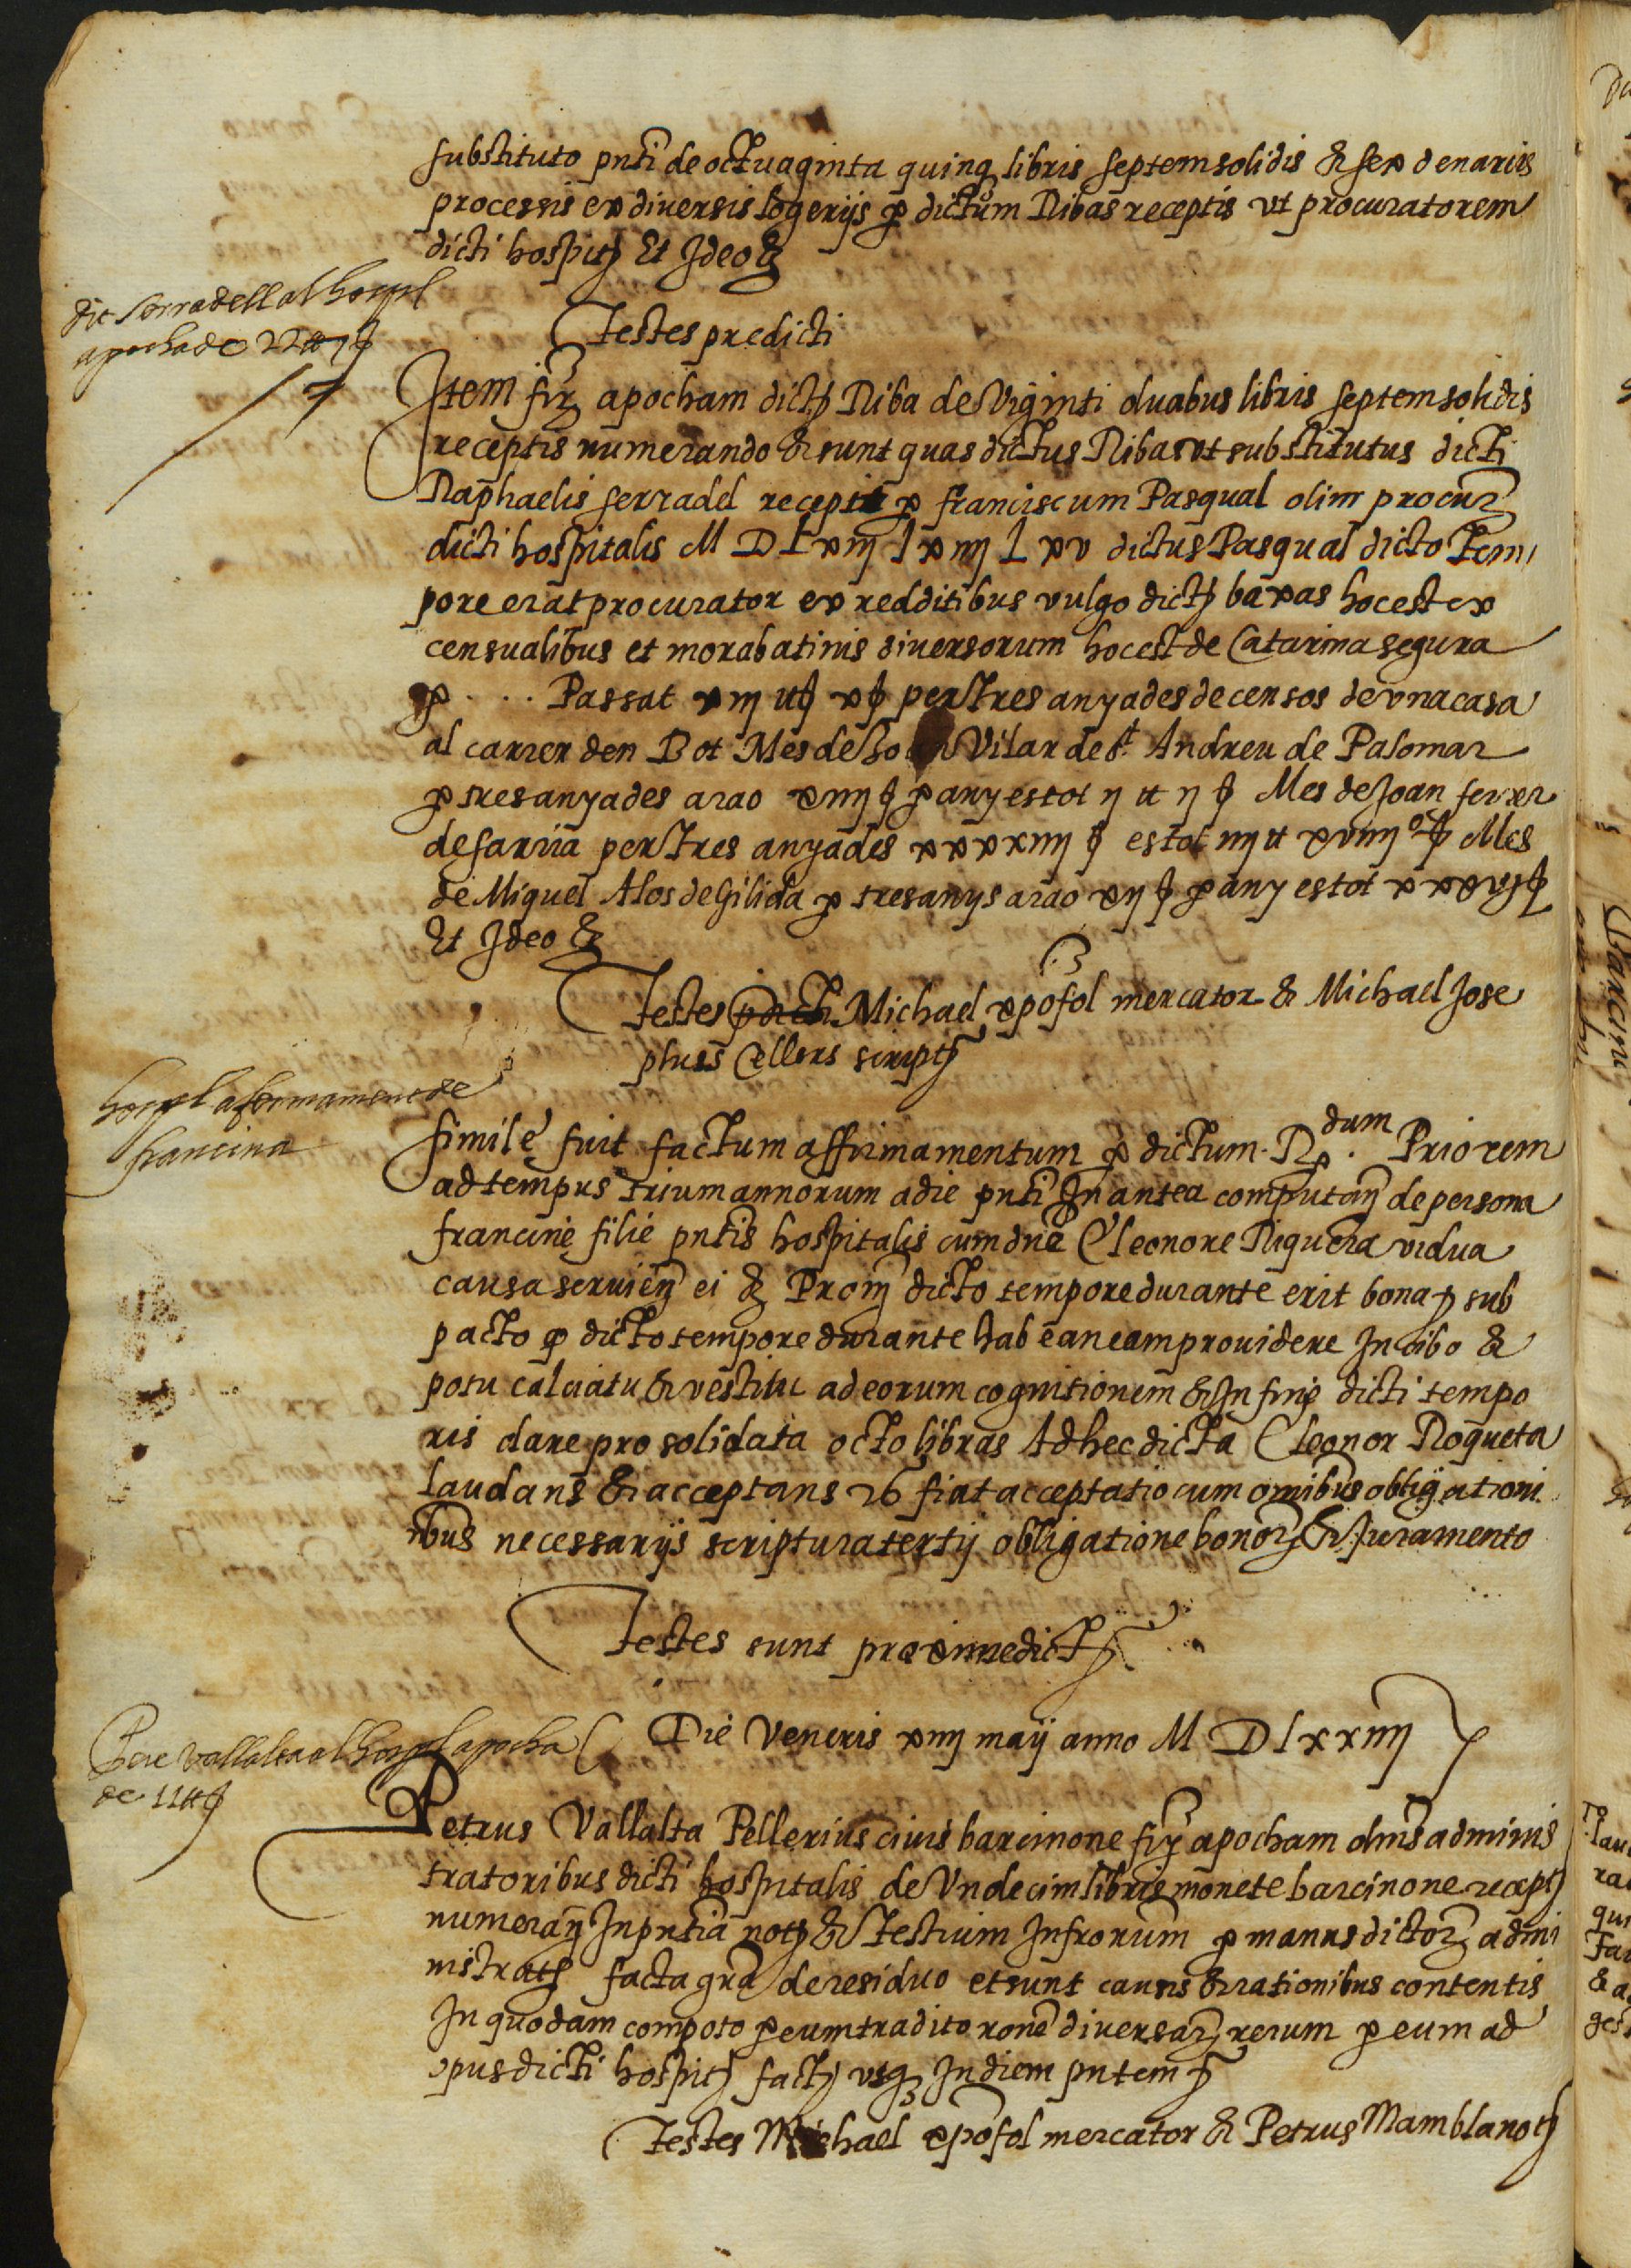 substituto pnti de octuaginta quinq libris septem solidis & sex denariis
processis ex diversis logerijs p dictum Ribas receptis vt procuratorem
dicti hospit Et Ideo &
dit Serradell al hospl
apocha de 22 ℔ 7 ß
Testes predicti
Item fir apocham dict Riba de Viginti duabus libris septem solidis
receptis numerando & sunt quas dictus Ribas vt substitutus dicti
Raphaelis serradel recepit p franciscum Pasqual olim procur
dicti hospitalis M D Lxiij Lxiiij Lxv dictus Pasqual dicto tem
pore erat procurator ex redditibus vulgo dict baxas hoc est ex
censualibus et morabatinis diversorum hoc est de Catarina segura
p . . . Passat xiij ℔ x ß per tres anyades de censos de vna casa
al carrer den Bot Mes de Joan Vilar de st Andreu de Palomar
p tres anyades a rao xiiij ß p any es tot ij ℔ ij ß Mes de Joan ferrer
de sarria per tres anyades xxxxiiij ß es tot iiij ℔ xviiij ß Mes
de Miquel Alos de Gilida p tres anys a rao xij ß p any es tot xxxvj ß
Et Ideo &
Testes pdicti Michael xpofol mercator & Michael Jose
phus Cellers script
hospl afermament de
francina
Simile fuit factum affirmamentum p dictum Rdum p. Priorem
ad tempus trium annorum a die pnti In antea computan de persona
francine filie pntis hospitalis cum dne Eleonore Riquera vidua
causa servien ei & Prom dicto tempore durante erit bona sub
pacto q dicto tempore durante habean eam providere In cibo &
potu calciatu & vestitu ad eorum cognitionem & In fine dicti tempo
ris dare pro solidata octo libras Ad hec dicta Eleonor Roqueta
laudans & acceptans fiat acceptatio cum omibus obligationi
bus necessarijs scriptura tertij obligatione bonor & Juramento
Testes sunt proxime dict
Pere Vallalta al hospl apocha
de 11 ℔ ß
Die Veneris xiiij maij anno M D Lxxiiij
Petrus Vallalta Pellerius civis barcinone fir apocham dnis adminis
tratoribus dicti hospitalis de Vndecim libris monete barcinone recept
numeran In pntia not & testium Infrorum p manus dictor admi
nistrat facta gra de residuo et sunt causis & rationibus contentis
In quodam compoto p eum tradito rone diversar rerum p eum ad
opus dicti hospit fact vsq In diem pntem
Testes Michael xpofol mercator & Petrus Mambla not